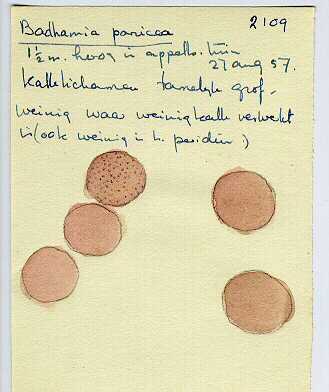 Badhamia panicea 2109
1½ m. hoog in appelb. tuin
27 aug 57.
Kalklichamen tamelijk grof.
weinig waar weinig kalk verwekt
is (ook weinig in h. peridium)